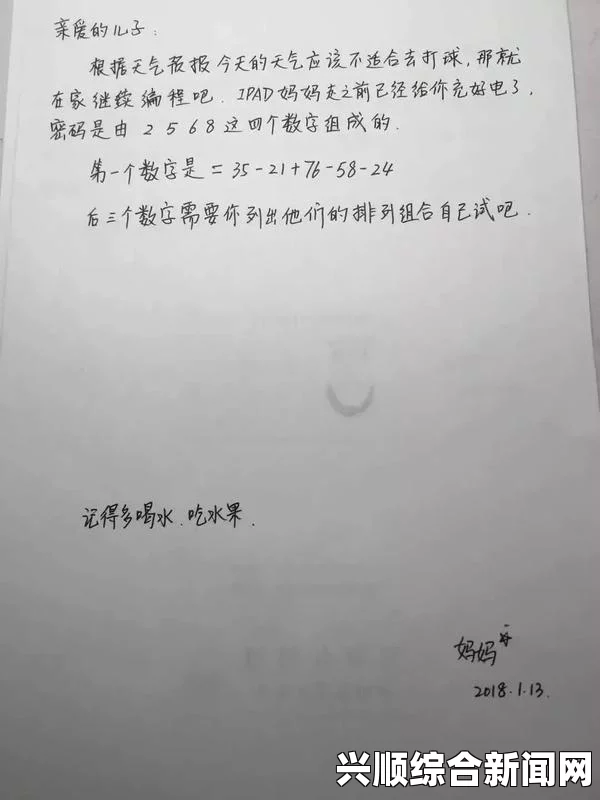 亲爱的儿子：
根据天气报报今天的天气应该不适合去打球，那就
在家继续编程吧．IPAD妈妈走之前已经给你充好电了，
密码是由 2 5 6 8 这四个数字组成的．
第一个数字是 = 35-21+76-58-24
后三个数字需要你列出他们的排列组合自己试吧．
记得多喝水、吃水果．
妈妈
2018.1.13.
兴顺综合新闻网